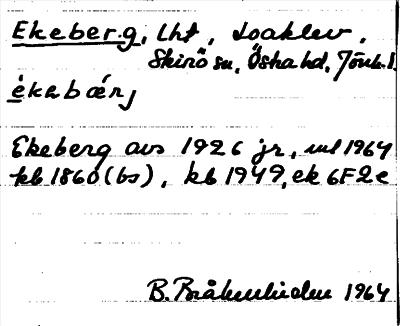 Ekeberg, lht, Loaklev,
Skirö sn, Östra hd, Jönk.l.
èkabærj
Ekeberg avs 1926 jr, ml 1964
kb 1860 (bs), kb 1949, ek 6F2e
B. 1964